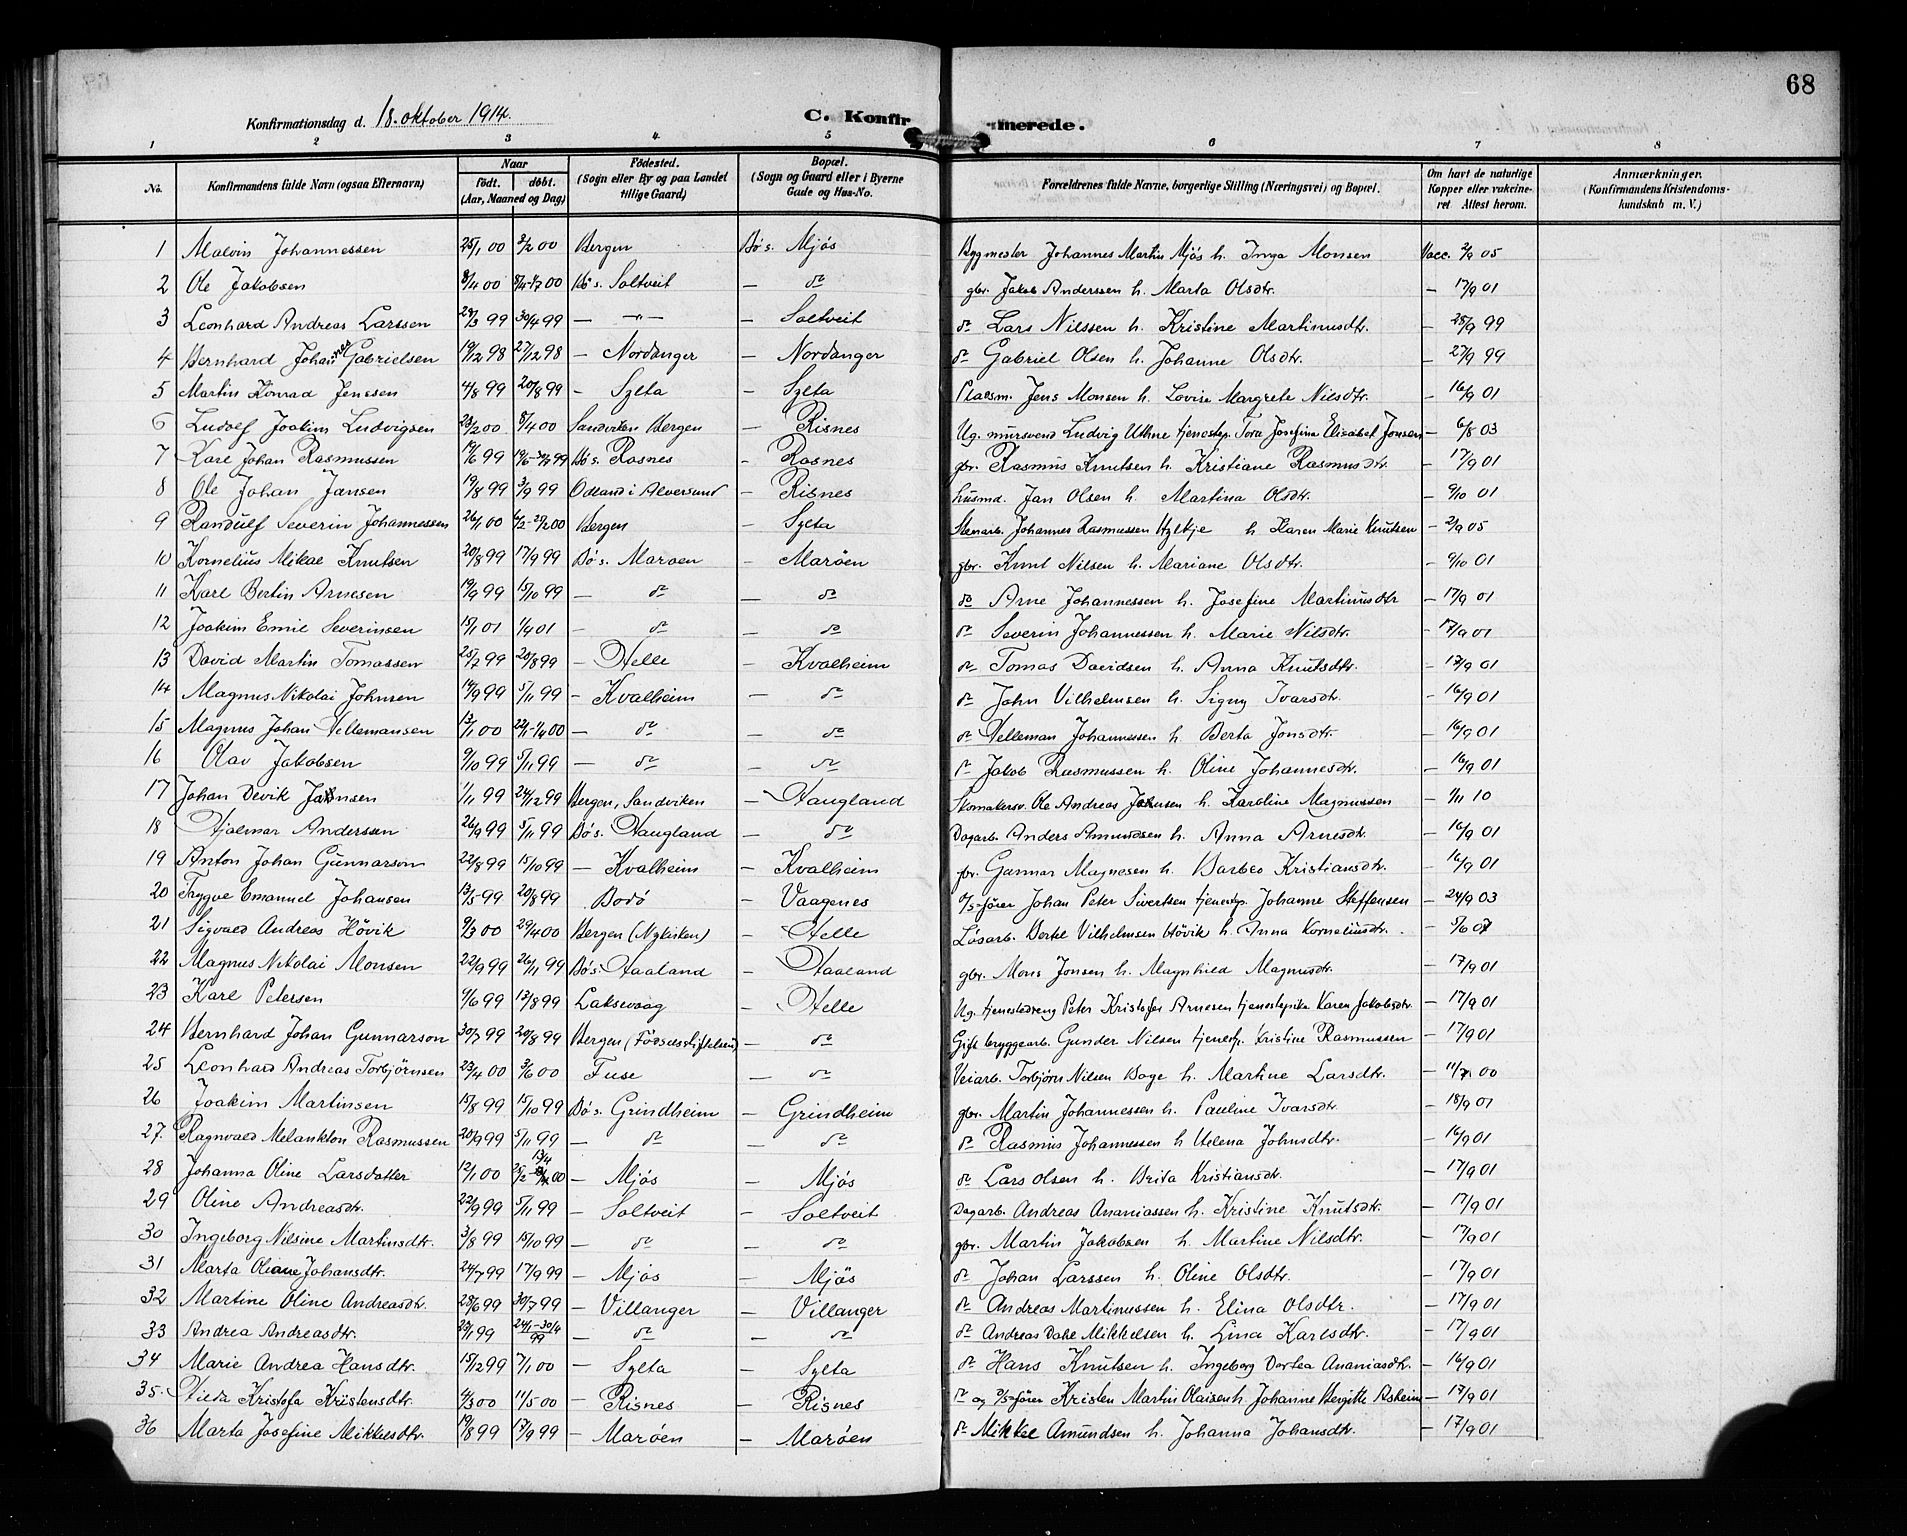 68
Konfirmationsdag d. 18. oktober 1914. C. Konfirmerede.
1 2 3 4 5 6 7 8
No. Konfirmandens fulde Navn (ogsaa Efternavn) Naar født. døbt. (Aar, Maaned og Dag) Fødested. (Sogn eller By og paa Landet tillige Gaard) Bopæl. (Sogn og Gaard eller i Byerne Gade og Hus-No. Forældrenes fulde Navne, borgerlige Stilling (Næringsvei) og Bopæl. Om havt de naturlige Kopper eller vakcineret Attest herom. Anmærkninger. (Konfirmandens Kristendomskundskab m. V.)
1 Malvin Johannessen 25/1 00 3/2 00 Bergen Bø s. Mjøs Bygmester Johannes Martin Mjøs h. Inga Monsen Vacc. 2/9 05
2 Ole Jakobsen 8/4 00 Bø s. Soltveit — do gbr. Jakob Anderssen h. Marta Olsdtr. — 17/9 01
3 Leonhard Andreas Larssen 24/3 99 30/4 99 — " — — Soltveit do Lars Nilssen h. Kristine Martinusdtr. — 28/9 99
4 Bernhard Johannes Gabrielsen 19/12 98 27/12 98 — Nordanger — Nordanger do Gabriel Olsen h. Johanne Olsdtr. — 27/9 99
5 Martin Konrad Jenssen 4/8 99 20/8 99 — Sylta — Sylta Pladsm. Jens Monsen h. Lovise Margrete Nilsdtr. — 16/9 01
6 Ludolf Joakim Ludvigsen 23/2 00 8/4 00 Sandviken Bergen — Risnes Ug. mursvend Ludvig Uthne tjenestep. Tora Josefine Elisabet Jonsen — 6/8 03
7 Kare Johan Rasmussen 14/6 99 Bø s. Rosnes — Rosnes gbr. Rasmus Knutsen h. Kristiane Rasmusdtr. — 17/9 01
8 Ole Johan Jansen 19/8 99 3/9 99 Odland i Alversund — Risnes husmd. Jan Olsen h. Martina Olsdtr. — 9/10 01
9 Randulf Severin Johannessen 26/1 00 Bergen — Sylta Stenarb. Johannes Rasmussen Hylkje h Karen Marie Knutsen — 2/9 05
10 Kornelius Mikal Knutsen 20/8 99 17/9 99 Bø s. Marøen — Marøen gbr. Knut Nilsen h. Mariane Olsdtr. — 9/10 01
11 Karl Bertin Arnesen 19/9 99 15/10 99 — do — do do Arne Johannessen h. Josefine Martinusdtr — 17/9 01
12 Joakim Emil Severinsen 15/1 01 1/4 01 — do — do do Severin Johannessen h. Marie Nilsdtr. — 17/9 01
13 David Martin Tomassen 25/7 99 20/8 99 — Helle — Kvalheim do Tomas Davidsen h. Anna Knutsdtr. — 17/9 01
14 Magnus Nikolai Johnsen 14/9 99 5/11 99 — Kvalheim — do do John Vilhelmsen h. Signy Ivarsdtr. — 16/9 01
15 Magnus Johan Vellemansen 13/1 00 — do — do do Velleman Johannessen h. Berta Jonsdtr. — 16/9 01
16 Olav Jakobsen 9/10 99 5/11 99 — do — do do Jakob Rasmussen h. Oline Johannesdtr. — 16/9 01
17 Johan Devik 1/11 99 24/12 99 Bergen, Sandviken — Haugland Skomakersv. Ole Andreas h. Karoline Magnussen — 1/11 10
18 Hjalmar Anderssen 26/9 99 5/11 99 Bø s. Haugland — do Dagarb. Anders Amundsen h. Anna Arnesdtr. — 16/9 01
19 Anton Johan Gunnarson 22/8 99 15/10 99 — Kvalheim — Kvalheim gbr. Gunnar Magnesen h. Barbro Kristiansdtr. — 16/9 01
20 Trygve Emanuel Johansen 13/5 99 20/8 99 Bodø — Vaagenes D/S-fører Johan Peter Sivertsen tjenestep. Johanne Steffensen — 24/9 03
21 Sigvald Andreas Høvik 9/3 00 29/4 00 Bergen (Nykirken) — Helle Løsarb. Bertel Vilhelmsen Høvik h. Anna Korneliusdtr. — 5/6 07
22 Magnus Nikolai Monsen 22/9 99 26/11 99 Bø s. Haaland — Haaland gbr. Mons Jonsen h. Magnhild Magnusdtr. — 17/9 01
23 Karl Petersen 4/6 99 13/8 99 Laksevaag — Helle Ug. tjenestedreng Peter Kristofer Arnesen tjenestepike Karen Jakobsdtr. — 17/9 01
24 Bernhard Johan Gunnarson 30/7 99 20/8 99 Bergen (Fødselsstiftelsen) — do Gift bryggearb. Gunder Nilsen tjenestp. Kristine Rasmussen — 17/9 01
25 Leonhard Andreas Torbjørnsen 23/4 00 3/6 00 Fuse — do Veiarb. Torbjørn Nilsen Boge h. Martine Larsdtr. — 00
26 Joakim Martinsen 15/8 99 15/10 99 Bø s. Grindheim — Grindheim gbr. Martin Johannessen h. Pauline Ivarsdtr. — 18/9 01
27. Ragnvald Melankton Rasmussen 20/9 99 5/11 99 — do — do do Rasmus Johannessen h Helena Johnsdtr. — 16/9 01
28 Johanna Oline Larsdatter 12/1 00 — Mjøs — Mjøs do Lars Olsen h. Brita Kristiansdtr. — 17/9 01
29 Oline Andreasdtr. 22/9 99 5/11 99 — Soltveit — Soltveit Dagarb. Andreas Ananiassen h. Kristine Knutsdtr. — 17/9 01
30 Ingeborg Nilsine Martinsdtr. 3/8 99 15/10 99 — do — do gbr. Martin Jakobsen h. Martine Nilsdtr. — 17/9 01
31 Marta Oliane Johansdtr. 24/7 99 17/9 99 — Mjøs — Mjøs do Johan Larssen h. Oline Olsdtr. — 17/9 01
32 Martine Oline Andreasdtr. 28/6 99 30/7 99 — Villanger — Villanger do Andreas Martinussen h. Elina Olsdtr. — 17/9 01
33 Andrea Andreasdtr. 23/1 99 24/1-30/4 99 — do — do do Andreas Dahl Mikkelsen h. Lina Karlsdtr. — 17/9 01
34 Marie Andrea Hansdtr. 15/12 99 7/1 00 — Sylta — Sylta do Hans Knutsen h. Ingeborg Dortea Ananiasdtr. — 16/9 01
35. Hilda Kristofa Kristensdtr. 4/3 00 11/5 00 — Risnes — Risnes do og D/S-fører Kristen Martin Olaisen h. Johanne Bergitte Asheim — 17/9 01
36 Marta Josefine Mikkelsdtr. 19/8 99 17/9 99 — Marøen — Marøen do Mikkel Amundsen h. Johanna Johansdtr. — 17/9 01